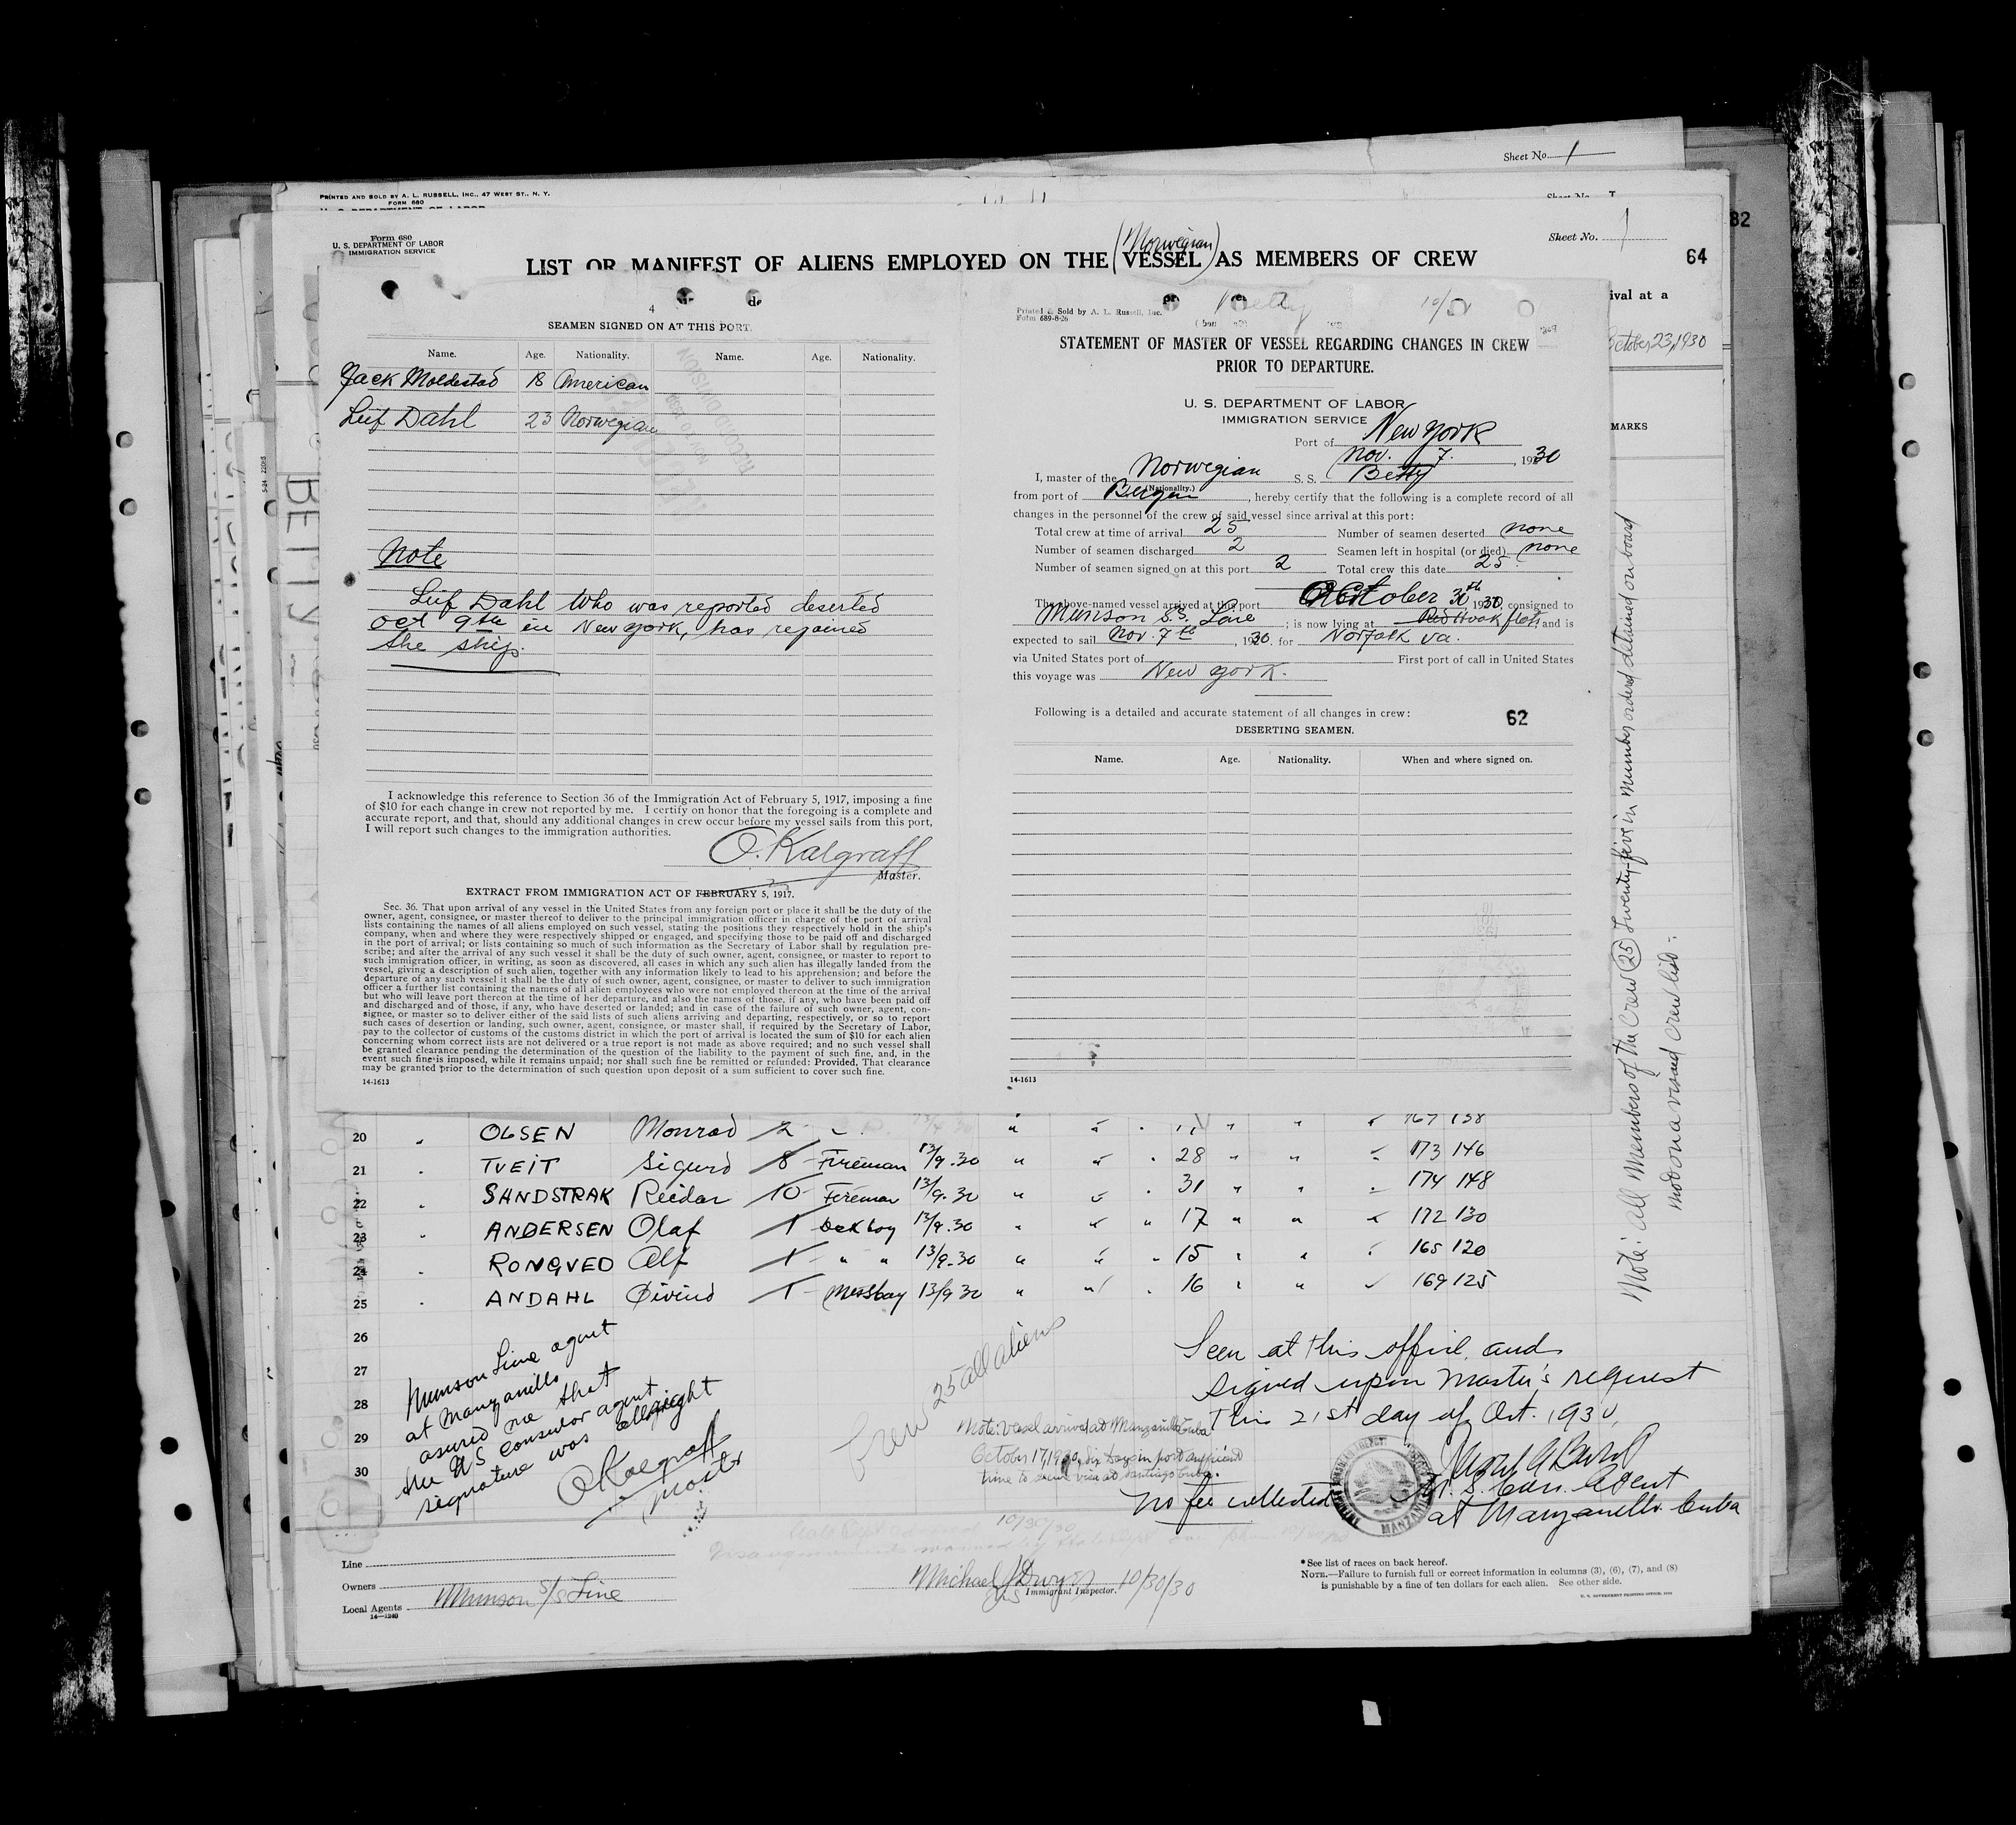 Sheet No. 1
PRINTED AND SOLD BY A. L. RUSSELL, INC., 47 WEST ST., N. Y.
FORM 680
82
Sheet No. 1
Form 680
U. S. DEPARTMENT OF LABOR
IMMIGRATION SERVICE
(Norwegian)
LIST OR MANIFEST OF ALIENS EMPLOYED ON THE VESSEL AS MEMBERS OF CREW
64
ival at a
October 23, 1930
MARKS
BETTY
4
SEAMEN SIGNED ON AT THIS PORT.
Name. Age. Nationality. Name. Age. Nationality.
Jack Moldestad 18 American
Leif Dahl 23 Norwegian
Note
Leif Dahl who was reported deserted
Oct 9th in New York, has rejoined
the ship.
I acknowledge this reference to Section 36 of the Immigration Act of February 5, 1917, imposing a fine
of $10 for each change in crew not reported by me. I certify on honor that the foregoing is a complete and
accurate report, and that, should any additional changes in crew occur before my vessel sails from this port,
I will report such changes to the immigration authorities.
O. Kalgraff
Master.
EXTRACT FROM IMMIGRATION ACT OF FEBRUARY 5, 1917.
Sec. 36. That upon arrival of any vessel in the United States from any foreign port or place it shall be the duty of the
owner, agent, consignee, or master thereof to deliver to the principal immigration officer in charge of the port of arrival
lists containing the names of all aliens employed on such vessel, stating the positions they respectively hold in the ship's
company, when and where they were respectively shipped or engaged, and specifying those to be paid off and discharged
in the port of arrival; or lists containing so much of such information as the Secretary of Labor shall by regulation pre-
scribe; and after the arrival of any such vessel it shall be the duty of such owner, agent, consignee, or master to report to
such immigration officer, in writing, as soon as discovered, all cases in which any such alien has illegally landed from the
vessel, giving a description of such alien, together with any information likely to lead to his apprehension; and before the
departure of any such vessel it shall be the duty of such owner, agent, consignee, or master to deliver to such immigration
officer a further list containing the names of all alien employees who were not employed thereon at the time of the arrival
but who will leave port thereon at the time of her departure, and also the names of those, if any, who have been paid off
and discharged and of those, if any, who have deserted or landed; and in case of the failure of such owner, agent, con-
signee, or master so to deliver either of the said lists of such aliens arriving and departing, respectively, or so to report
such cases of desertion or landing, such owner, agent, consignee, or master, shall, if required by the Secretary of Labor,
pay to the collector of customs of the customs district in which the port of arrival is located the sum of $10 for each alien
concerning whom correct lists are not delivered or a true report is not made as above required; and no such vessel shall
be granted clearance pending the determination of the question of the liability to the payment of such fine, and, in the
event such fine is imposed, while it remains unpaid; nor shall such fine be remitted or refunded: Provided, That clearance
may be granted prior to the determination of such question upon deposit of a sum sufficient to cover such fine.
14-1613
Printed & Sold by A. L. Russell, Inc.
Form 689-8-26
Betty
STATEMENT OF MASTER OF VESSEL REGARDING CHANGES IN CREW
PRIOR TO DEPARTURE.
U. S. DEPARTMENT OF LABOR
IMMIGRATION SERVICE
Port of New York
Nov. 7. , 1930
I, master of the Norwegian S. S. Betty
(Nationality.)
from port of Bergen , hereby certify that the following is a complete record of all
changes in the personnel of the crew of said vessel since arrival at this port:
Total crew at time of arrival 25 Number of seamen deserted none
Number of seamen discharged 2 Seamen left in hospital (or died) none
Number of seamen signed on at this port 2 Total crew this date 25.
The above-named vessel arrived at this port October 30th 1930, consigned to
Munson S.S. Line ; is now lying at Red Hook flats, and is
expected to sail Nov. 7th , 1930. for Norfolk va.
via United States port of First port of call in United States
this voyage was New York.
Following is a detailed and accurate statement of all changes in crew:
62
DESERTING SEAMEN.
Name. Age. Nationality. When and where signed on.
14-1613
Note: All Members of the Crew (25) Twenty-five in number ordered detained on board
20 " OLSEN Monrad 2 167 138
21 " TVEIT Sigurd 8 Fireman 13/9.30 " " " 28 " " " 173 146
22 " SANDSTRAK Reidar 10 Fireman 13/9.30 " " " 31 " " " 174 148
23 " ANDERSEN Olaf 1 Deckboy 13/9.30 " " " 17 " " " 172 130
24 " RONGVED Alf 1 " " 13/9.30 " " " 15 " " " 165 120
25 " ANDAHL Øivind 1 Messboy 13/9 30 " " " 16 " " " 169 125
26
27
28
29
30
Munson Line agent
at Manzanillo
assured me that
the US consular agent
signature was allright
O Kalgraff
Master
Crew 25 all aliens
Note: Vessel arrived at Manzanillo Cuba
October 17, 1930, Six days in port sufficient
time to secure visa at Santiago Cuba.
Seen at this office, and
signed upon Master's request
This 21st day of Oct. 1930,
U. S. Con. Agent
at Manzanillo. Cuba
No fee collected
10/30/30
Line
Owners
Local Agents Munson S/S Line
14—1240
Michael J Dwyer 10/30/30
Immigrant Inspector.
* See list of races on back hereof.
NOTE.—Failure to furnish full or correct information in columns (3), (6), (7), and (8)
is punishable by a fine of ten dollars for each alien. See other side.
U. S. GOVERNMENT PRINTING OFFICE